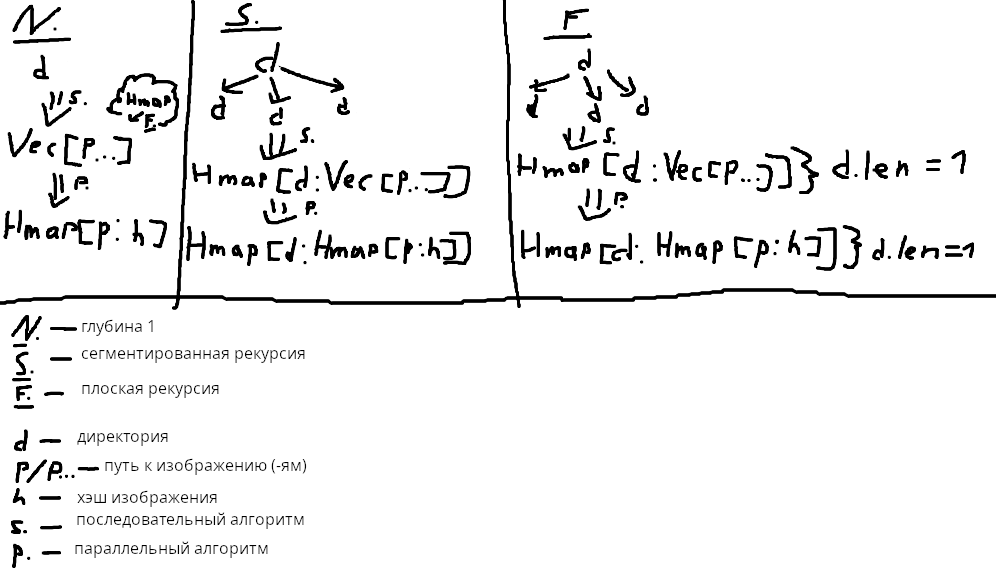 N.
d
s.
Hmap
F.
Vec[p...]
p.
Hmap[p:h]
S.
d
d d d
s.
Hmap[d:Vec[p...]]
p.
Hmap[d:Hmap[p:h]]
F
d
d d d
s.
Hmap[d:Vec[p...]]} d.len = 1
p.
Hmap[d: Hmap[p:h]]} d.len=1
N. — глубина 1
S. — сегментированная рекурсия
F. — плоская рекурсия
d — директория
p/p... — путь к изображению (-ям)
h — хэш изображения
s. — последовательный алгоритм
p. — параллельный алгоритм